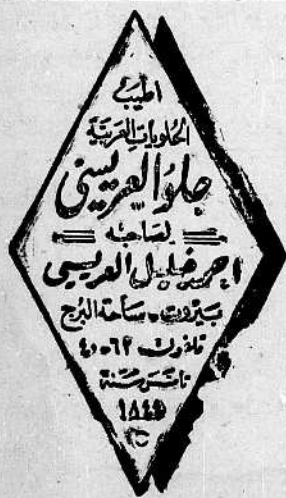 اطيب
الحلويات العربية
حلو العريسي
لصاحبه
احمد خليل العريسي
بيروت - ساحة البرج
تلفون ٦٢-٤٠
تاسس سنة